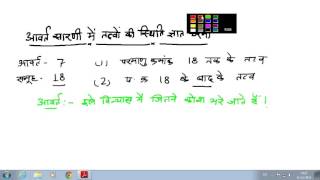 आवर्त सारणी में तत्वों की स्थिति ज्ञात करना
आवर्त - 7 (1) परमाणु क्रमांक 18 तक के तत्व
समूह - 18 (2) प. क्र 18 के बाद के तत्व
आवर्त :- इले. विन्यास में जितने कोश भरे जाते हैं।